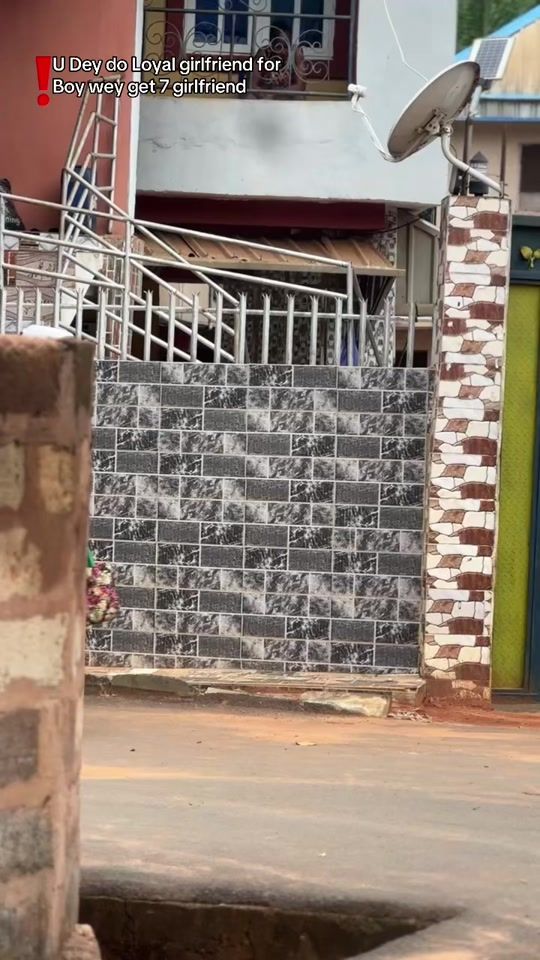 ❗U Dey do Loyal girlfriend for
Boy wey get 7 girlfriend